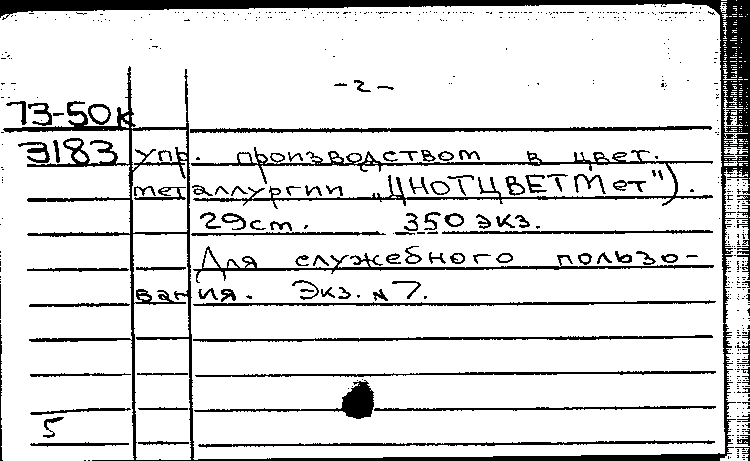 -2-
73-50к
3183 упр. производством в цвет.
металлургии „ЦНОТЦВЕТМет").
29см. 350 экз.
Для служебного пользо-
вания. Экз. № 7.
5